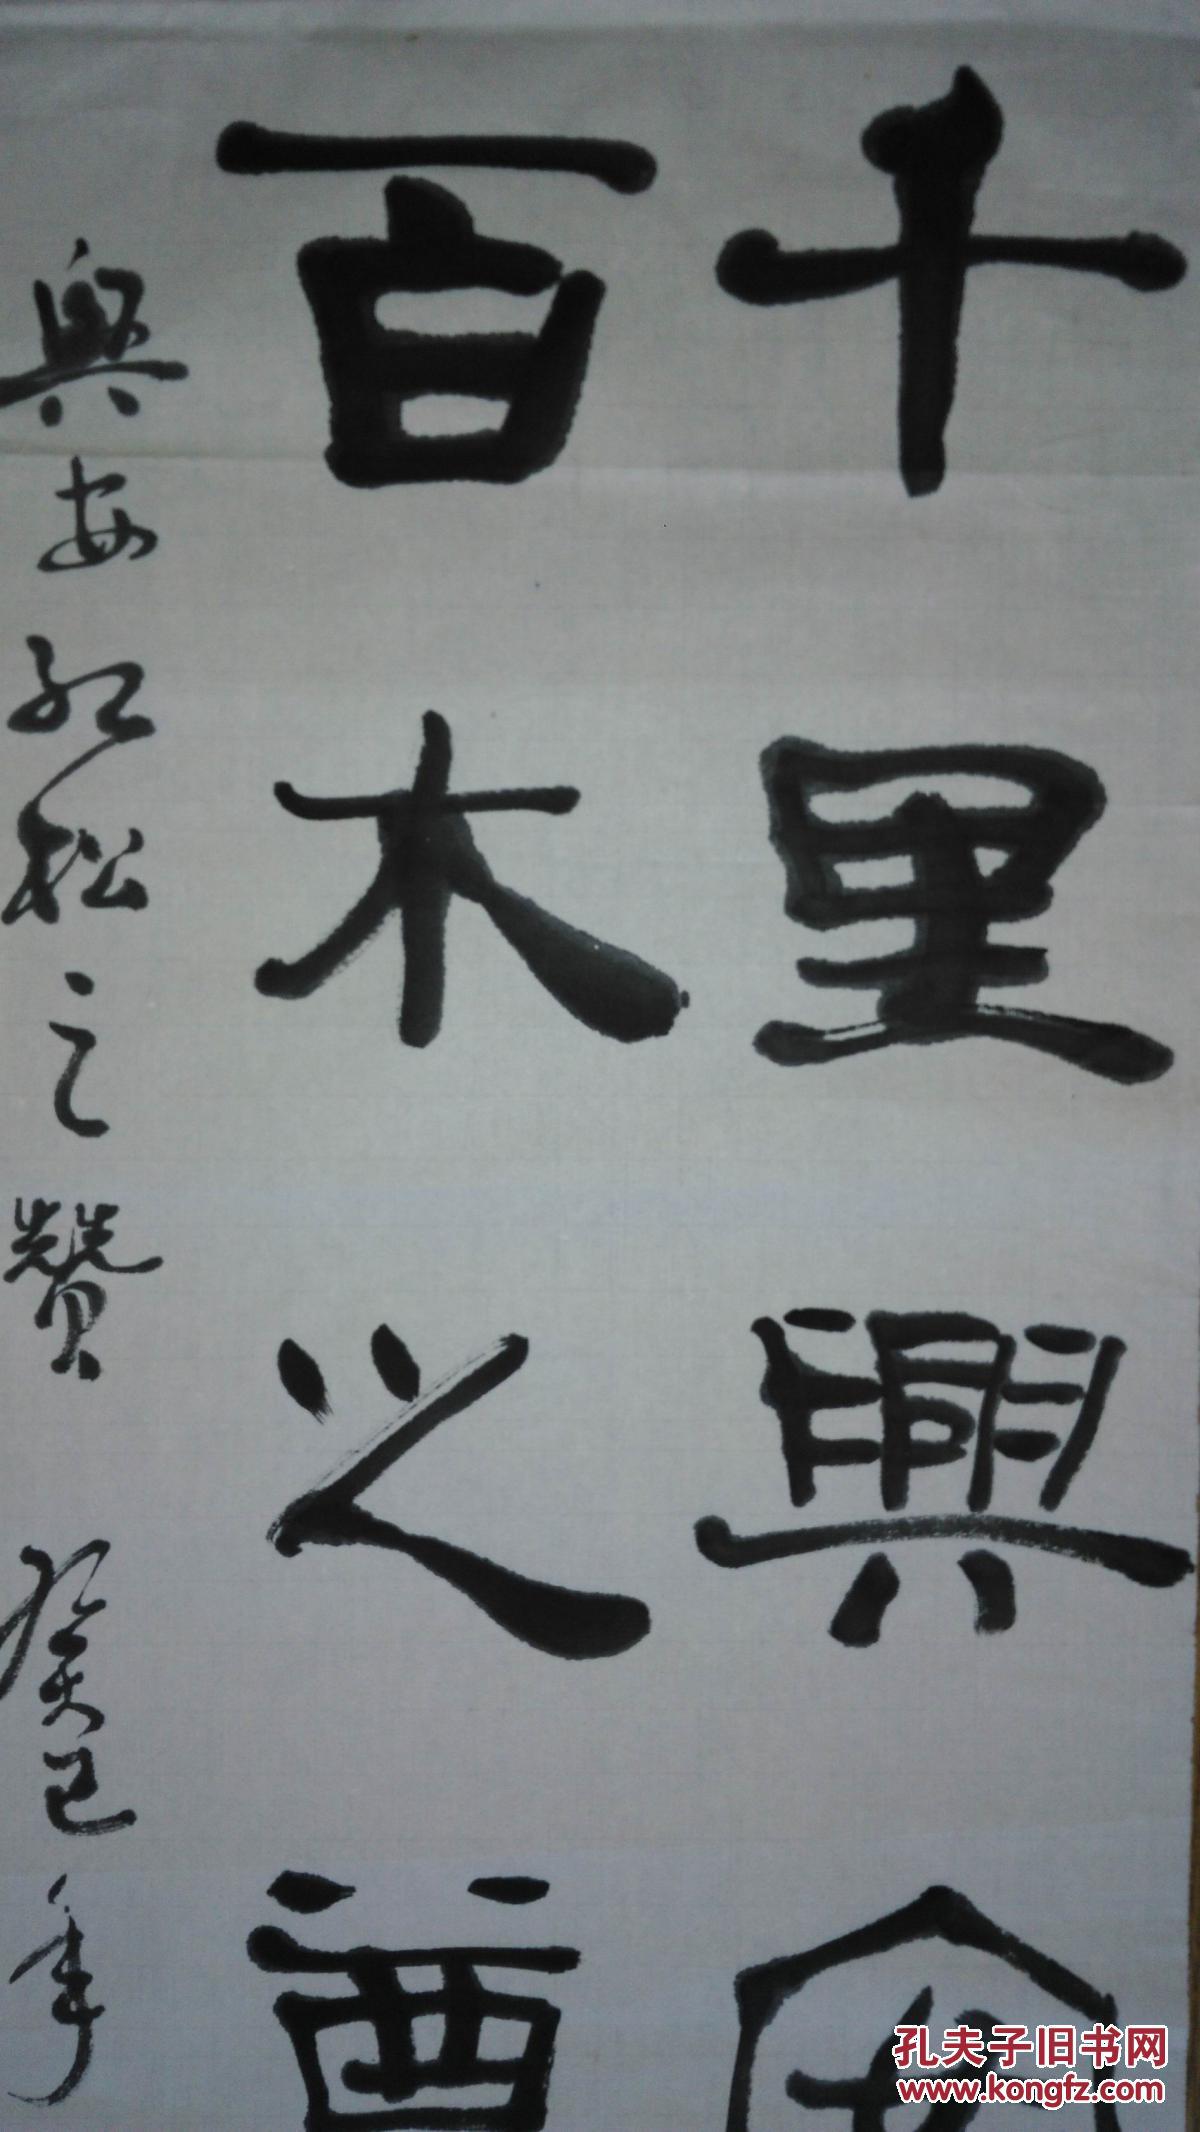 千里興安
百木之尊
興安紅松之贊 癸巳年
孔夫子旧书网
www.kongfz.com